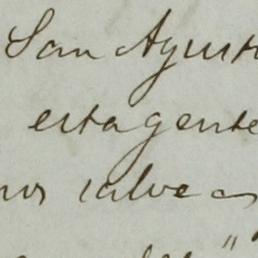 San Agust
esta gente
nos salve a
"